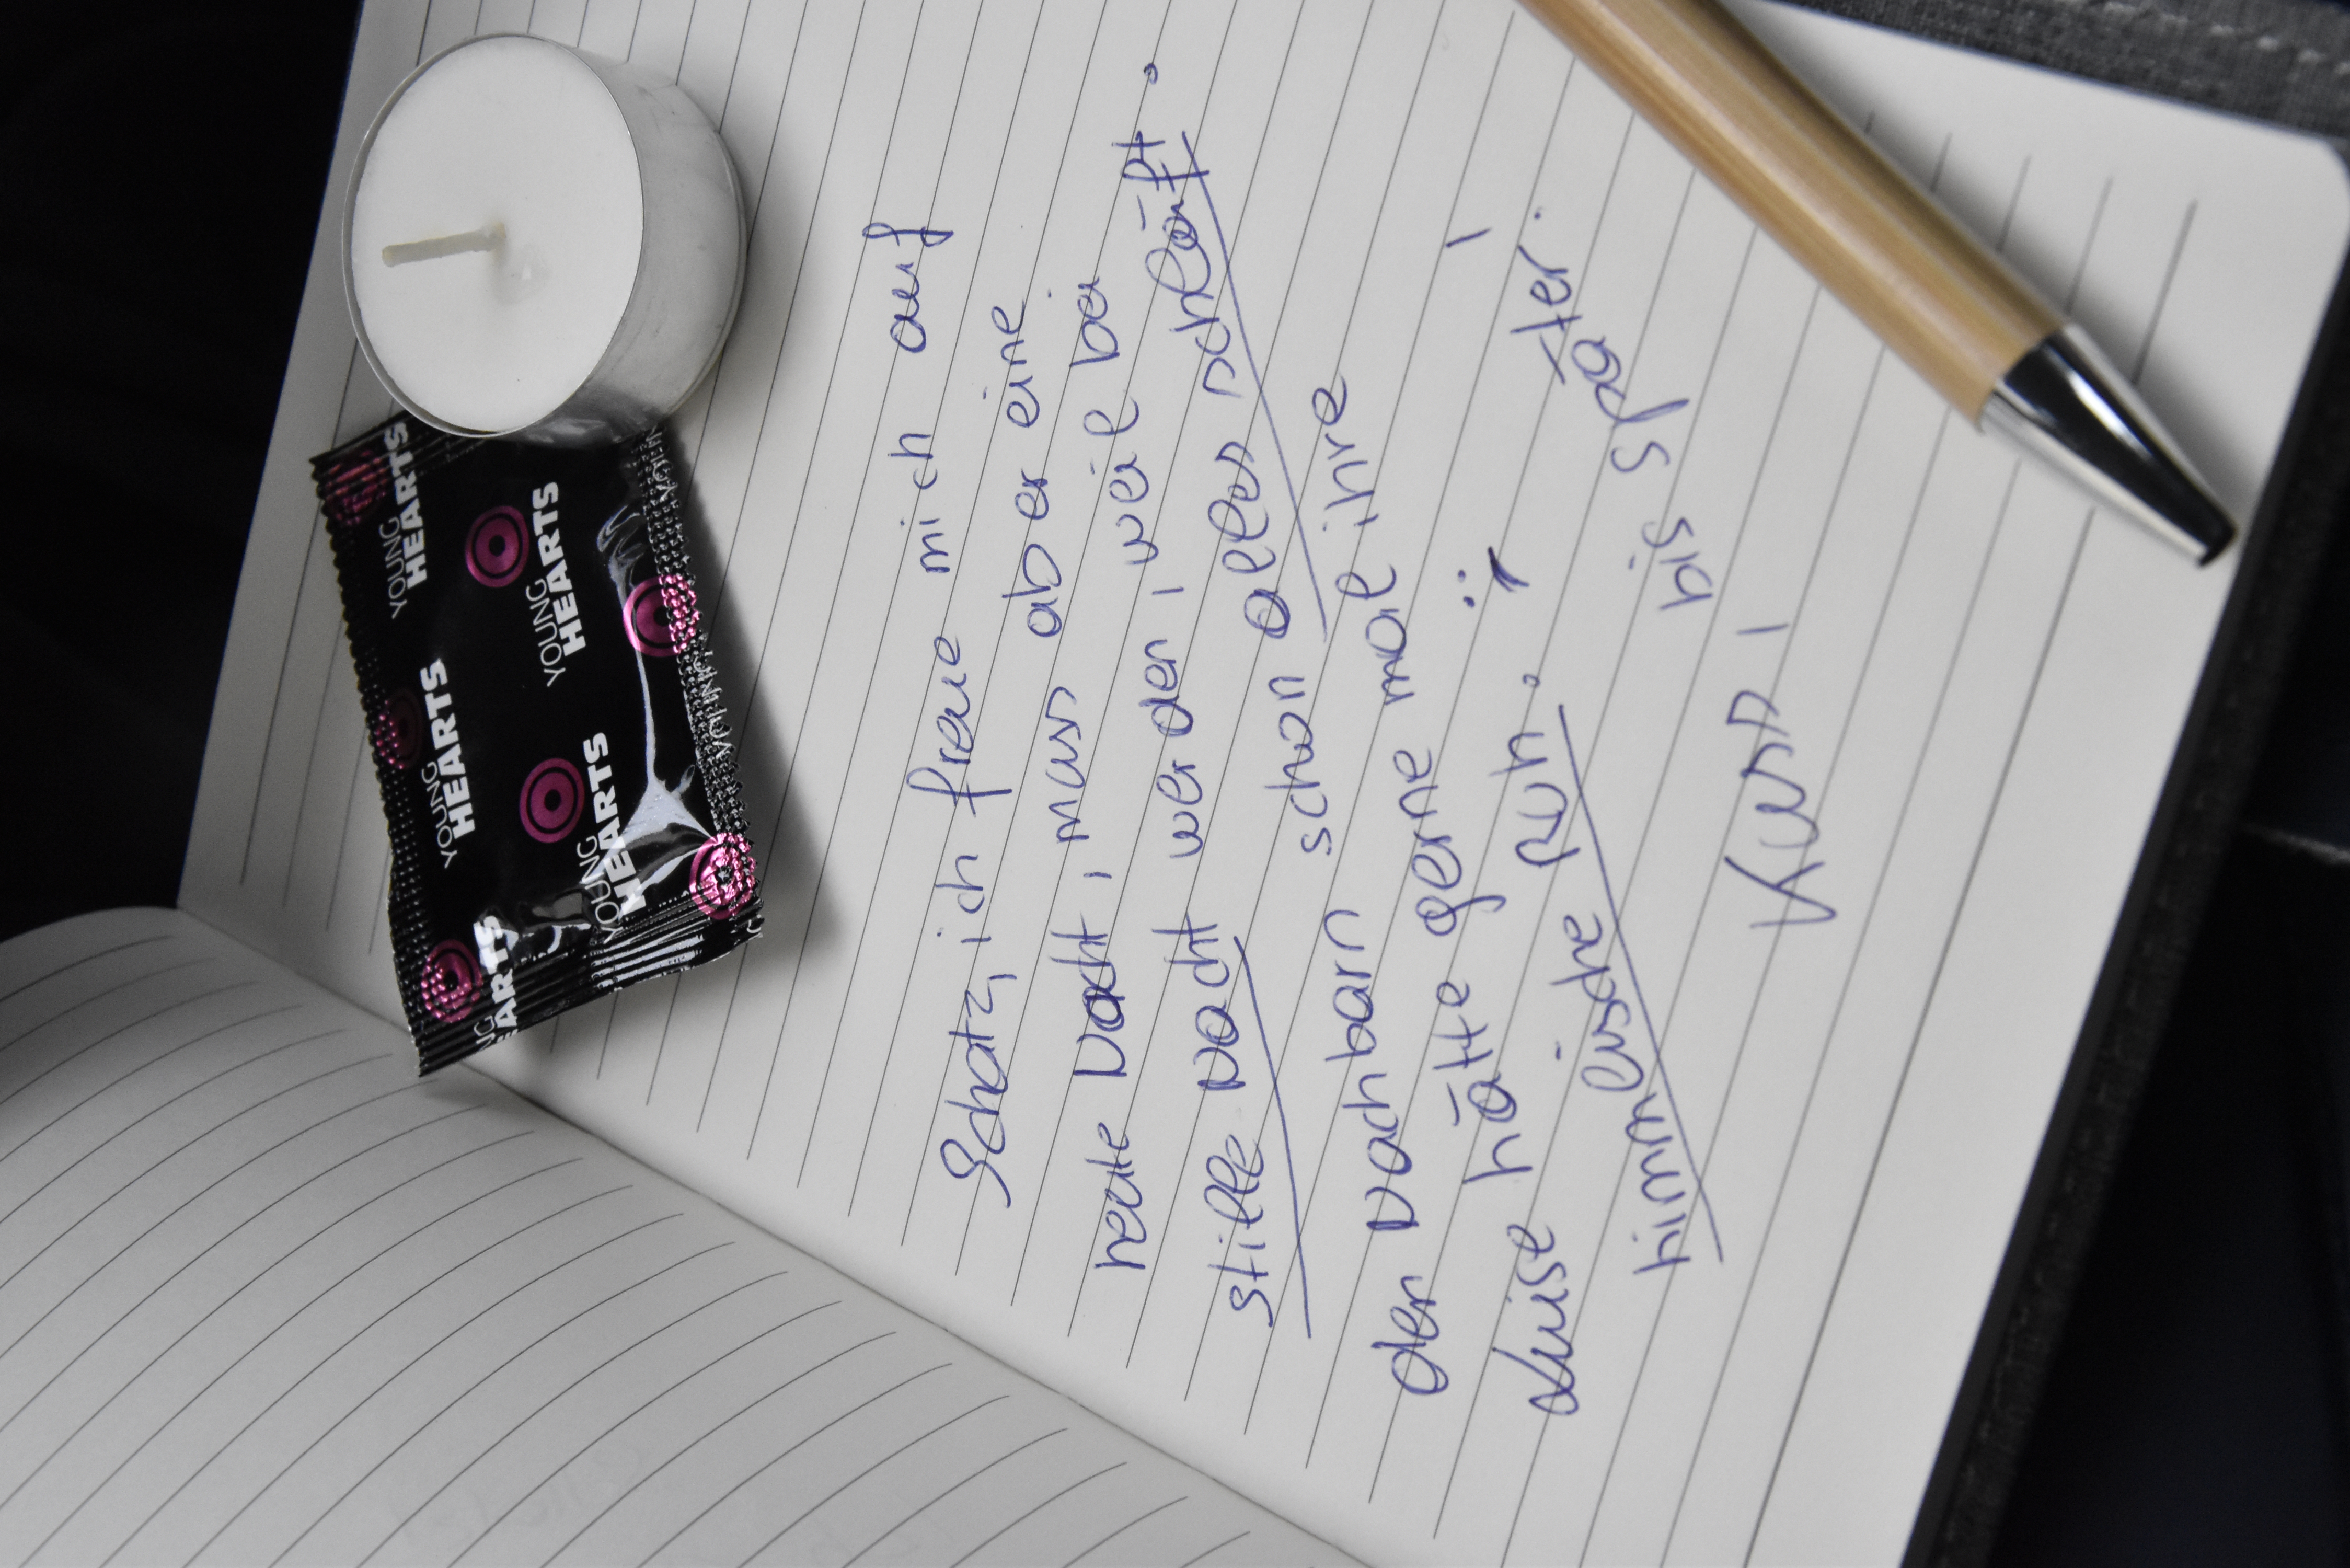 Schatz, ich freue mich auf
heute Nacht, muss aber eine
stille Nacht werden, weil bei
den Nachbarn schon alles schläft.
Luise hätte gerne mal ihre
himmlische Ruh. :)
bis später.
Kuss,
YOUNG HEARTS
YOUNG HEARTS
YOUNG HEARTS
YOUNG HEARTS
NG ARTS